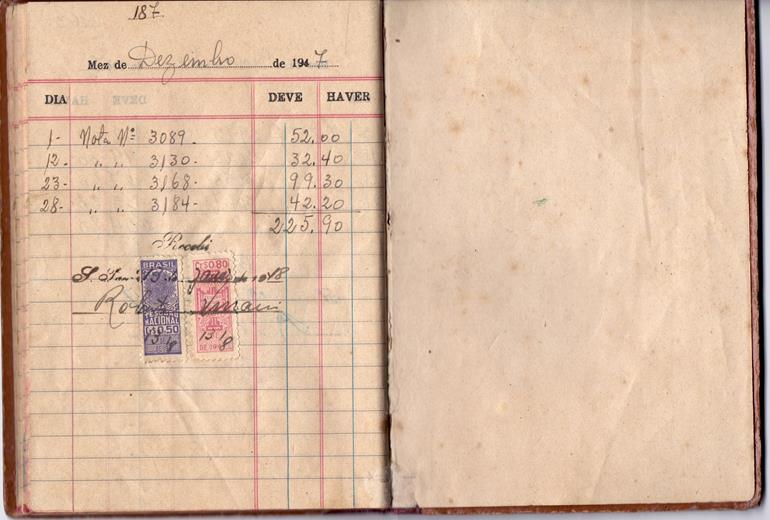 187
Mez de Dezembro de 1947
DIA DEVE HAVER
1- Nota Nº 3089. 52.00
12. " " 3130. 32.40
23- " " 3168- 99.30
28- " " 3184- 42.20
225.90
Recebi
de 1948
BRASIL Cr$0.80
NACIONAL
Cr$0.50